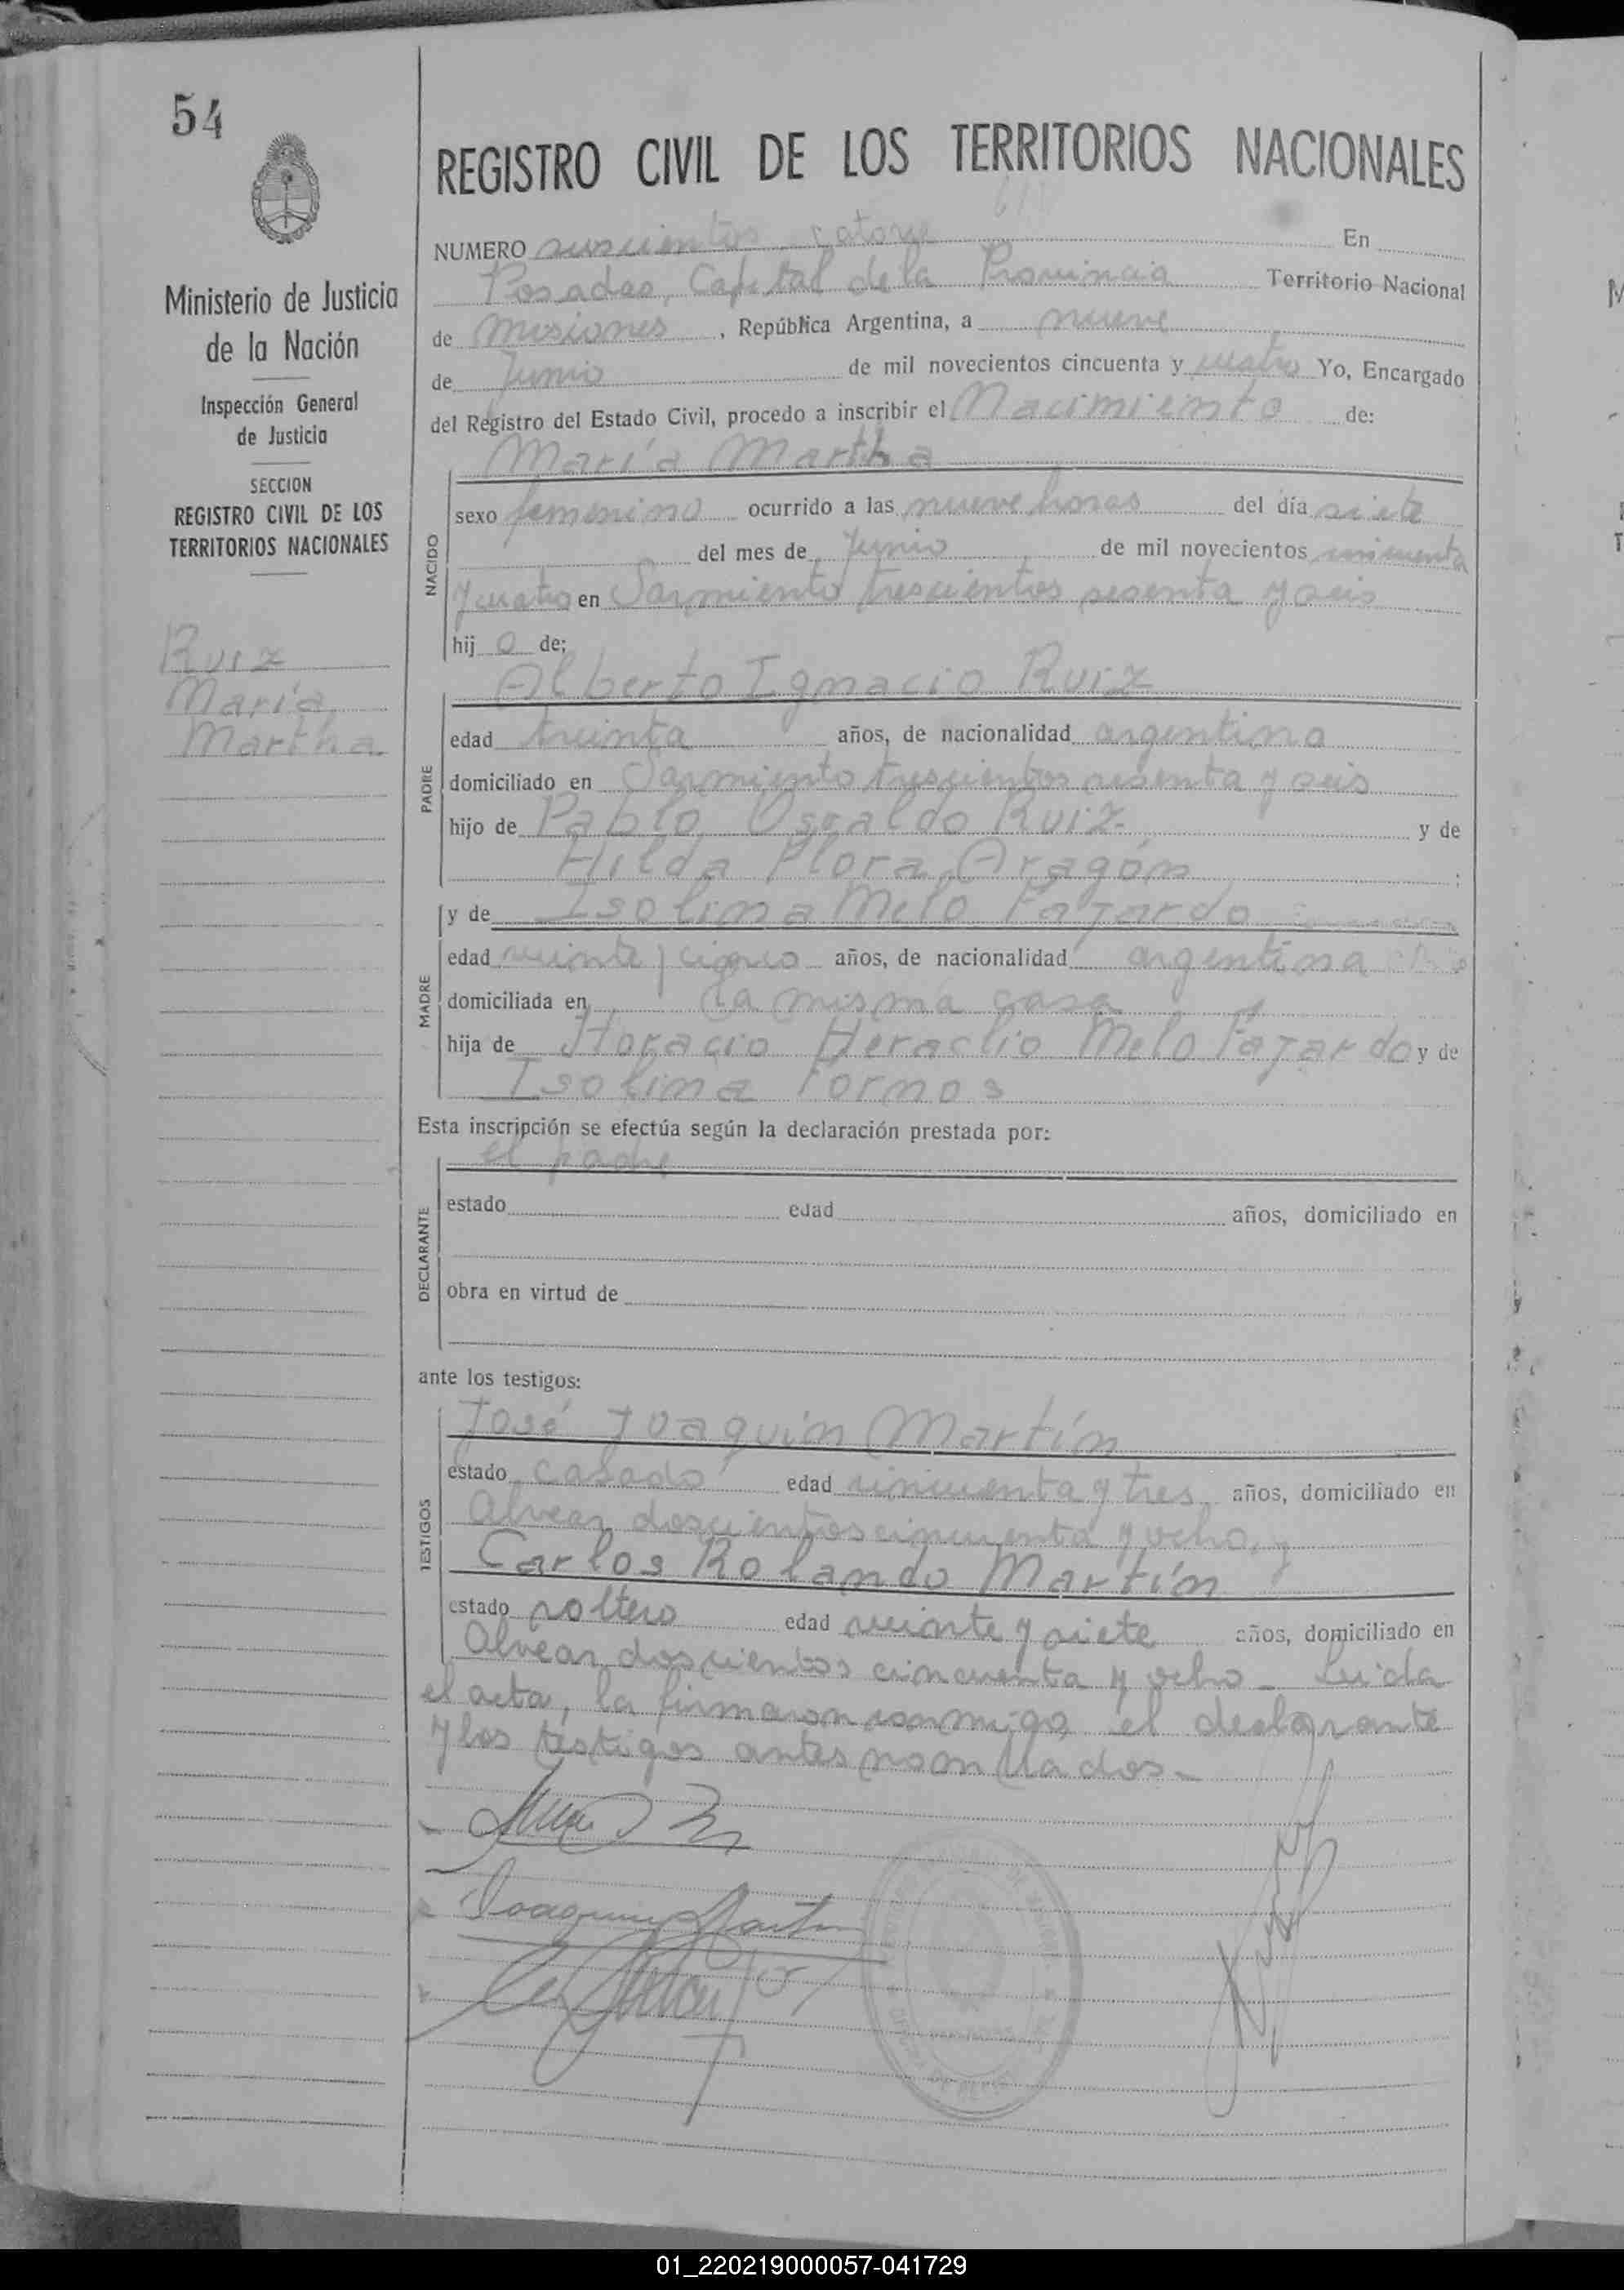 54
REGISTRO CIVIL DE LOS TERRITORIOS NACIONALES
Ministerio de Justicia
de la Nación
Inspección General
de Justicia
SECCION
REGISTRO CIVIL DE LOS
TERRITORIOS NACIONALES
Ruiz
María
Martha
NUMERO seiscientos catorce En
Posadas, Capital de la Provincia Territorio Nacional
de Misiones, República Argentina, a nueve
de Junio de mil novecientos cincuenta y cuatro Yo, Encargado
del Registro del Estado Civil, procedo a inscribir el Nacimiento de:
NACIDO
María Martha
sexo femenino ocurrido a las nueve horas del día siete
del mes de Junio de mil novecientos cincuenta
y cuatro en Sarmiento trescientos sesenta y seis
hij a de;
PADRE
Alberto Ignacio Ruiz
edad treinta años, de nacionalidad argentina
domiciliado en Sarmiento trescientos sesenta y seis
hijo de Pablo Osvaldo Ruiz y de
Hilda Flora Aragón ;
MADRE
y de Isolina Melo Fajardo
edad veinte y cinco años, de nacionalidad argentina
domiciliada en la misma casa
hija de Horacio Heraclio Melo Fajardo y de
Isolina Fornos
Esta inscripción se efectúa según la declaración prestada por:
DECLARANTE
el padre
estado edad años, domiciliado en
obra en virtud de
ante los testigos:
TESTIGOS
José Joaquín Martín
estado casado edad cincuenta y tres años, domiciliado en
Alvear doscientos cincuenta y ocho, y
Carlos Rolando Martín
estado soltero edad veinte y siete años, domiciliado en
Alvear doscientos cincuenta y ocho - Leida
el acta, la firmaron conmigo, el declarante
y los testigos antes nombrados.-
Joaquin Martin
01_220219000057-041729